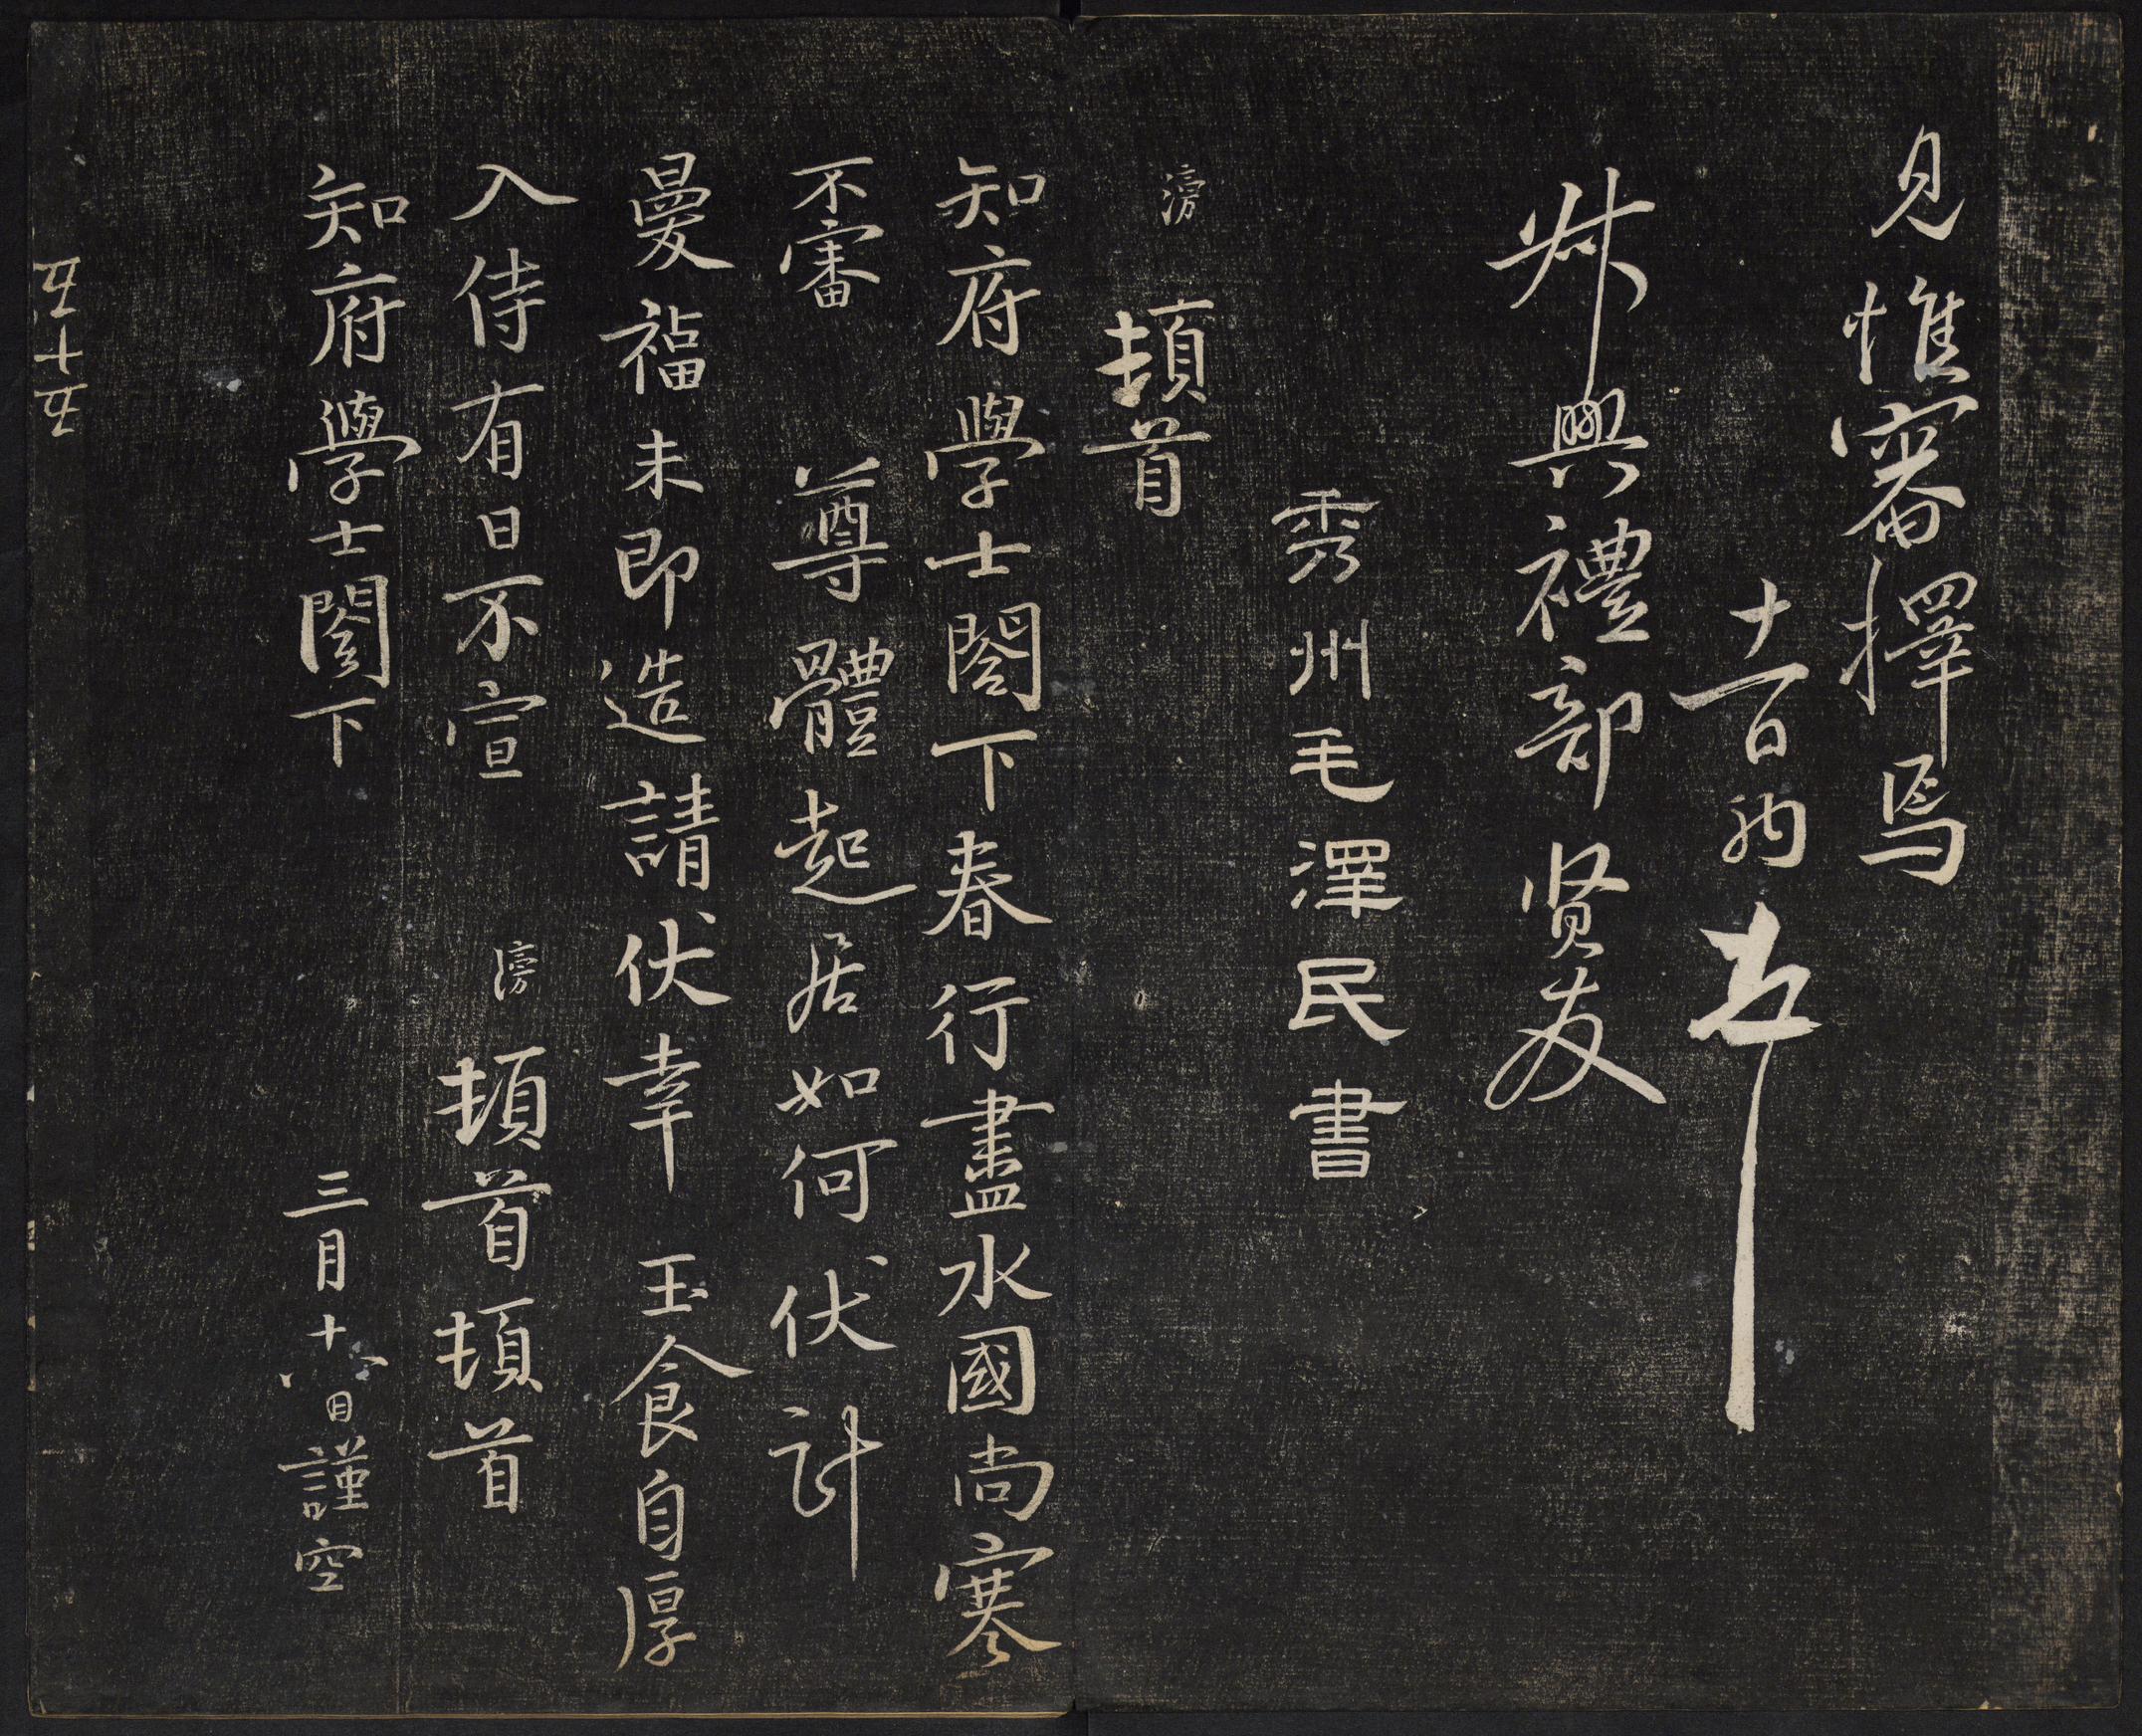 見惟審擇焉
十一日芾
叔興禮部賢友
秀州毛澤民書
滂頓首
知府學士閤下春行盡水國尚寒
不審尊體起居如何伏計
曼福未即造請伏幸玉食自厚
入侍有日不宣滂頓首頓首
知府學士閤下三月十八日謹空
五十五